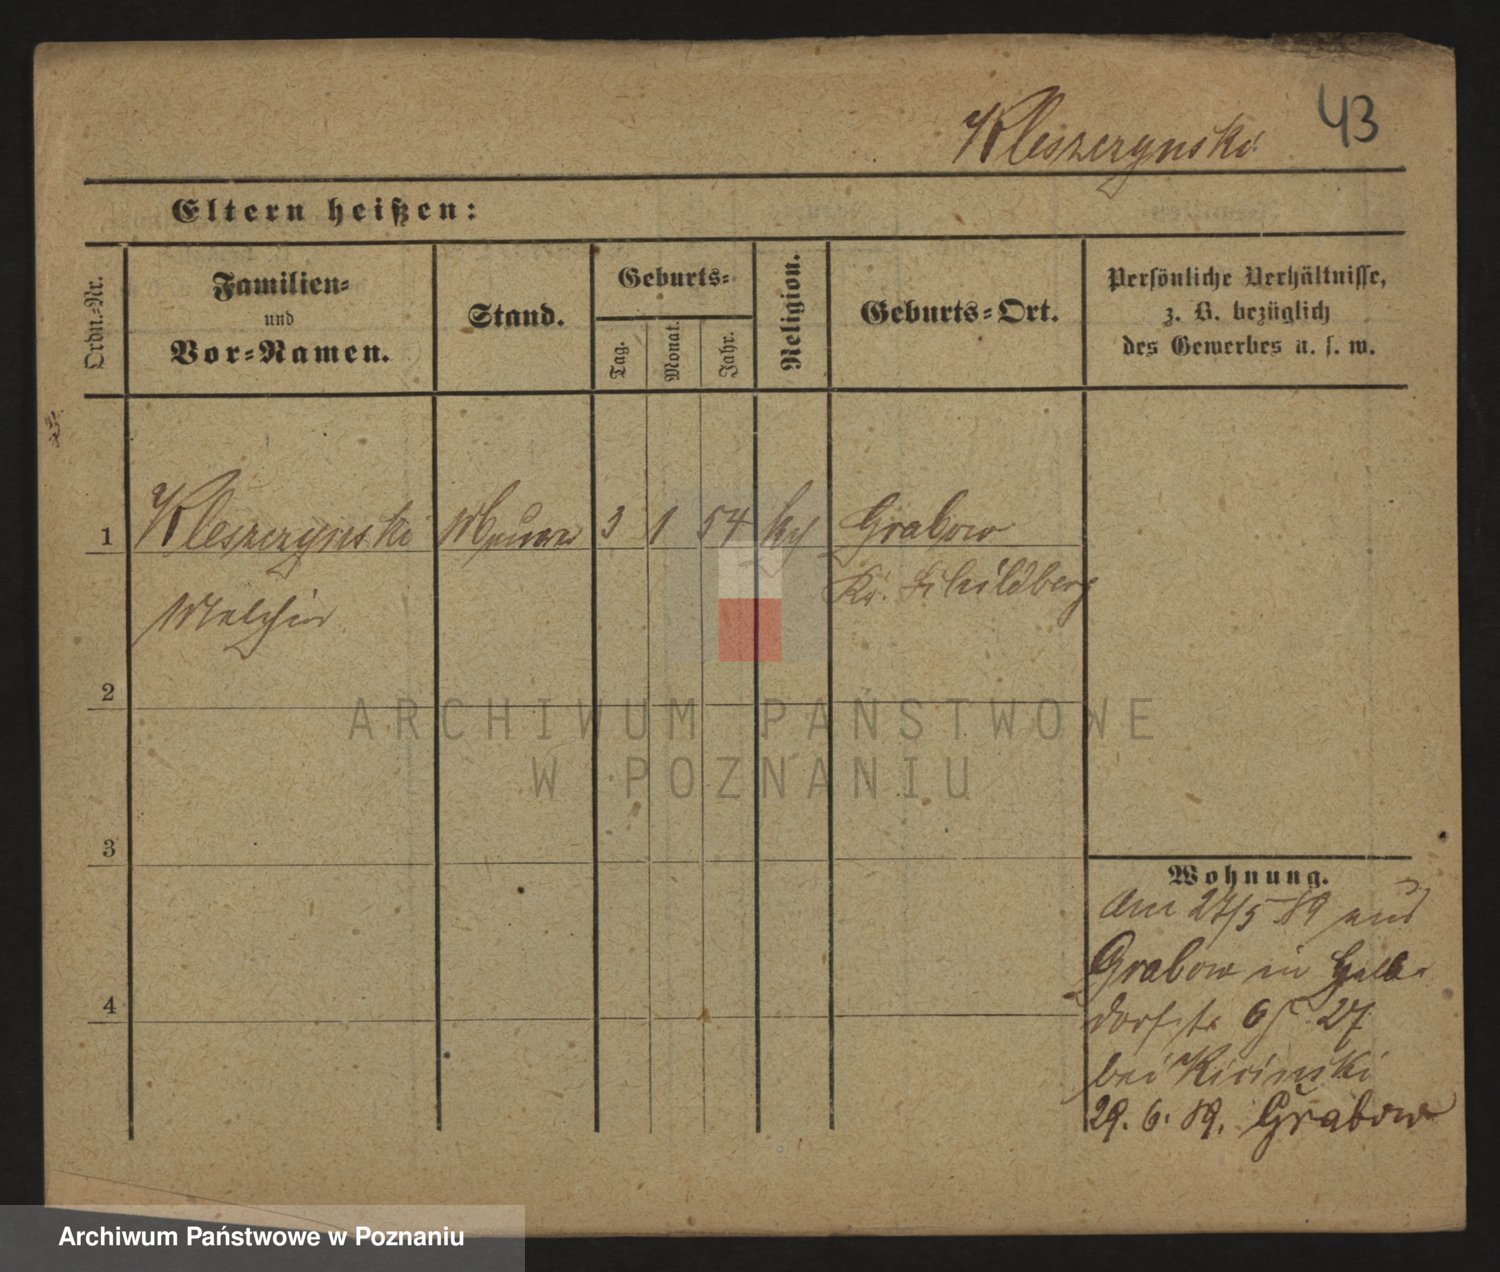 Kleszczynski 43
Eltern heißen:
Ordn.-Nr.
Familien-
und
Vor-Namen.
Stand.
Geburts-
Tag.
Monat.
Jahr.
Religion.
Geburts-Ort.
Persönliche Verhältnisse,
z. B. bezüglich
des Gewerbes u. s. w.
1 Kleszczynski Maurer 3 1 54 Grabow
Melchior Kr. Schildberg
2
3
4
ARCHIWUM PAŃSTWOWE
W POZNANIU
Wohnung.
Am 27/5 89 aus
Grabow in
27
bei
29. 6. 89. Grabow
Archiwum Państwowe w Poznaniu